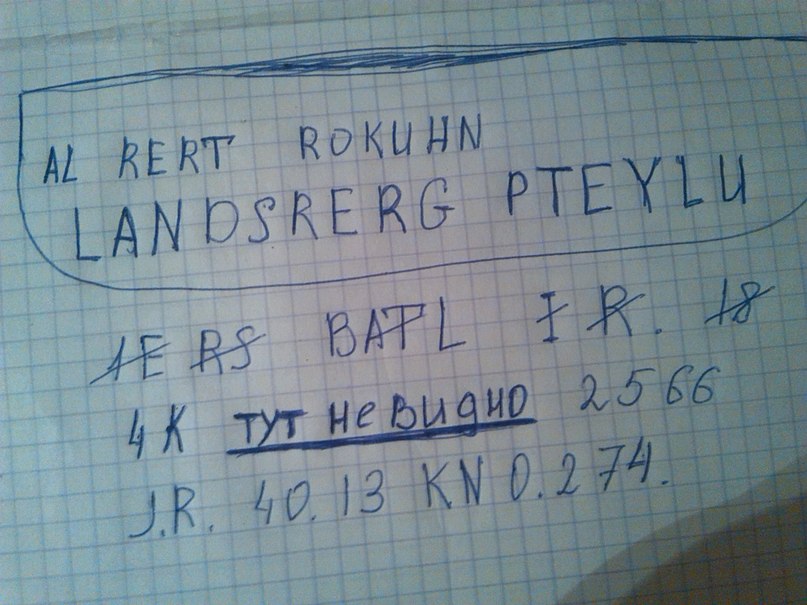 AL RERT ROKUHN
LANDSRERG PTEYLU
1E RS BATL I R. 18
4K тут не видно 2566
J.R. 40.13 KN 0.274.